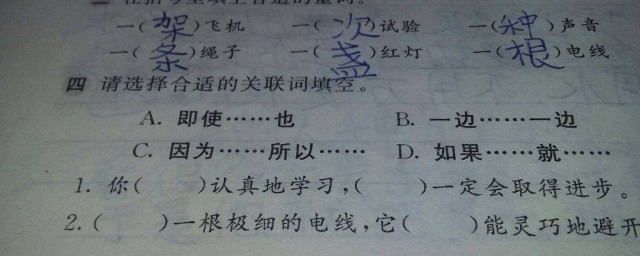 一(架)飞机 一(次)试验 一(种)声音
一(条)绳子 一(盏)红灯 一(根)电线
四 请选择合适的关联词填空。
A. 即使……也 B. 一边……一边
C. 因为……所以…… D. 如果……就……
1. 你( )认真地学习,( )一定会取得进步。
2.( )一根极细的电线,它( )能灵巧地避开